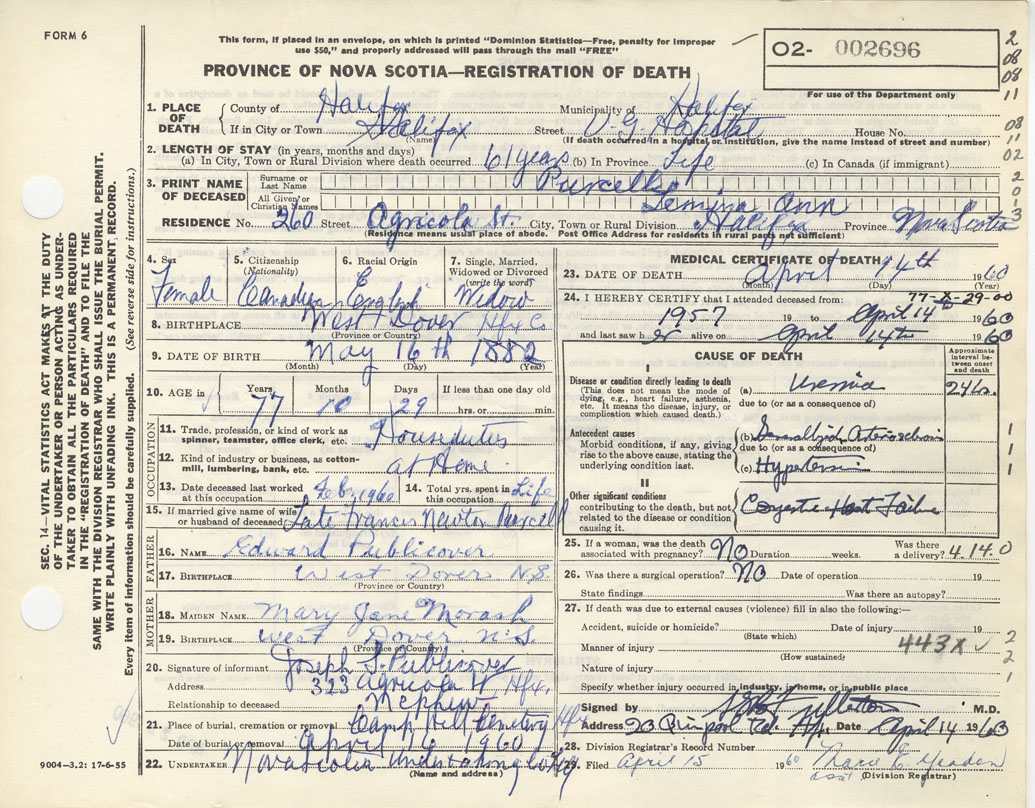 FORM 6
This form, if placed in an envelope, on which is printed "Dominion Statistics—Free, penalty for improper
use $50," and properly addressed will pass through the mail "FREE"
O2- 002696
For use of the Department only
2
08
08
11
08
11
02
2
0
1
3
PROVINCE OF NOVA SCOTIA—REGISTRATION OF DEATH
1. PLACE OF DEATH { County of Halifax Municipality of Halifax
If in City or Town Halifax (Name) Street V.G. Hospital House No.
(If death occurred in a hospital or institution, give the name instead of street and number)
2. LENGTH OF STAY (in years, months and days)
(a) In City, Town or Rural Division where death occurred 61 years (b) In Province Life (c) In Canada (if immigrant)
3. PRINT NAME OF DECEASED { Surname or Last Name Purcell
All Given or Christian Names Jemima Ann
RESIDENCE No. 260 Street Agricola St. City, Town or Rural Division Halifax Province Nova Scotia
(Residence means usual place of abode. Post Office Address for residents in rural parts not sufficient)
4. Sex Female
5. Citizenship (Nationality) Canadian
6. Racial Origin English
7. Single, Married, Widowed or Divorced (write the word) Widow
8. BIRTHPLACE West Dover Hfx Co
(Province or Country)
9. DATE OF BIRTH May 16th 1882
(Month) (Day) (Year)
10. AGE in Years 77 Months 10 Days 29 If less than one day old
hrs. or min.
OCCUPATION
11. Trade, profession, or kind of work as spinner, teamster, office clerk, etc. Houseduties
12. Kind of industry or business, as cotton-mill, lumbering, bank, etc. at Home
13. Date deceased last worked at this occupation Feb 1960
14. Total yrs. spent in this occupation Life
15. If married give name of wife or husband of deceased Late Francis Newton Purcell
FATHER
16. NAME Edward Publicover
17. BIRTHPLACE West Dover N.S.
(Province or Country)
MOTHER
18. MAIDEN NAME Mary Jane Morash
19. BIRTHPLACE West Dover N.S.
(Province or Country)
20. Signature of informant Joseph S. Publicover
Address 323 Agricola St Hfx.
Relationship to deceased Nephew
21. Place of burial, cremation or removal Camp Hill Cemetery Hfx
Date of burial or removal April 16 1960
22. UNDERTAKER Nova Scotia Undertaking Co Hfx
(Name and address)
9004—3.2: 17-6-55
MEDICAL CERTIFICATE OF DEATH
23. DATE OF DEATH April 14th 1960
(Month) (Day) (Year)
77-X-29-00
24. I HEREBY CERTIFY that I attended deceased from:
1957 19 to April 14 1960
and last saw her alive on April 14th 1960
CAUSE OF DEATH
Approximate interval between onset and death
I
Disease or condition directly leading to death
(This does not mean the mode of dying, e.g., heart failure, asthenia, etc. It means the disease, injury, or complication which caused death.)
(a) Uremia 24 hs.
due to (or as a consequence of)
Antecedent causes
Morbid conditions, if any, giving rise to the above cause, stating the underlying condition last.
(b) Generalized Arteriosclerosis
due to (or as a consequence of)
(c) Hypertension
II
Other significant conditions
contributing to the death, but not related to the disease or condition causing it.
Congestive Heart Failure
25. If a woman, was the death associated with pregnancy? No Duration weeks. Was there a delivery? 4.14.0
26. Was there a surgical operation? No Date of operation 19
State findings Was there an autopsy?
27. If death was due to external causes (violence) fill in also the following:—
Accident, suicide or homicide? Date of injury 19
(State which)
Manner of injury 443X
(How sustained)
2
2
1
Nature of injury
Specify whether injury occurred in industry, in home, or in public place
Signed by M.D.
Address 20 Quinpool Rd. Hfx. Date April 14 1960
28. Division Registrar's Record Number
29. Filed April 15 1960 Marie E. Yeadon
asst (Division Registrar)
SEC. 14—VITAL STATISTICS ACT MAKES IT THE DUTY
OF THE UNDERTAKER OR PERSON ACTING AS UNDER-
TAKER TO OBTAIN ALL THE PARTICULARS REQUIRED
IN THE "REGISTRATION OF DEATH" AND TO FILE THE
SAME WITH THE DIVISION REGISTRAR WHO SHALL ISSUE THE BURIAL PERMIT.
WRITE PLAINLY WITH UNFADING INK. THIS IS A PERMANENT RECORD.
Every item of information should be carefully supplied. (See reverse side for instructions.)